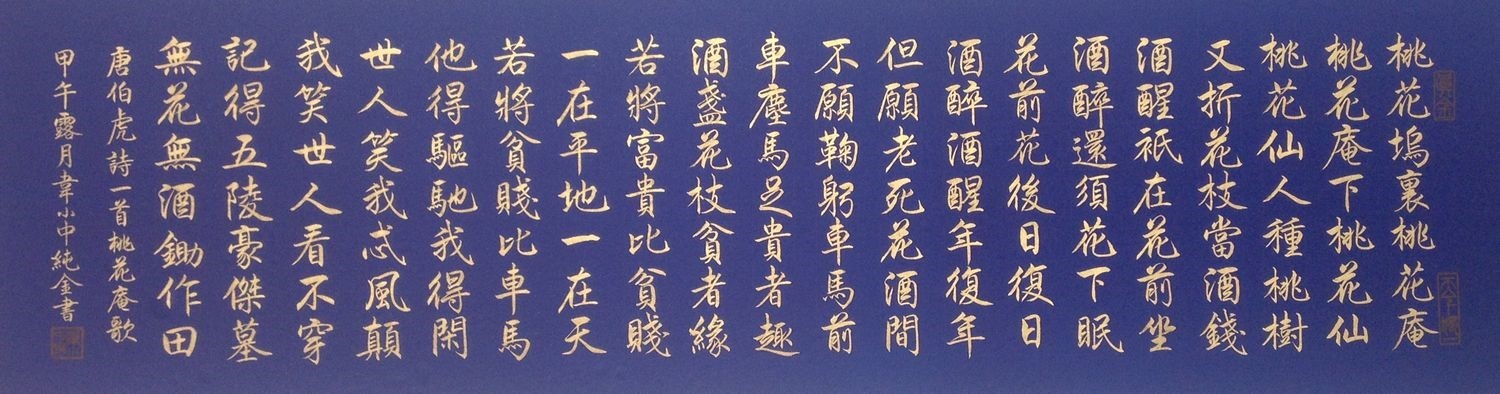 桃花塢裏桃花庵
桃花庵下桃花仙
桃花仙人種桃樹
又折花枝當酒錢
酒醒祇在花前坐
酒醉還須花下眠
花前花後日復日
酒醉酒醒年復年
但願老死花酒間
不願鞠躬車馬前
車塵馬足貴者趣
酒盞花枝貧者緣
若將富貴比貧賤
一在平地一在天
若將貧賤比車馬
他得驅馳我得閑
世人笑我忒風顛
我笑世人看不穿
記得五陵豪傑墓
無花無酒鋤作田
唐伯虎詩一首桃花庵歌
甲午露月韋小中純金書